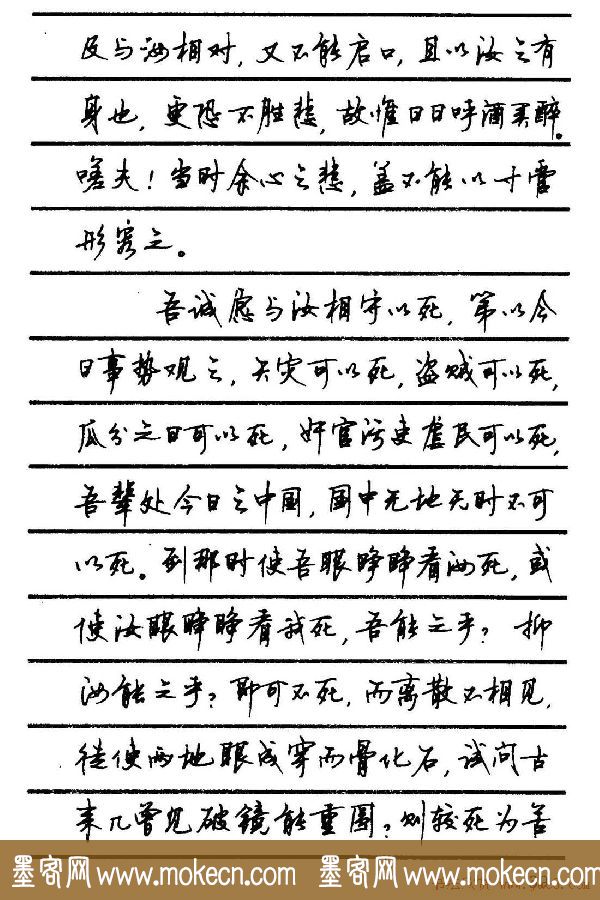 及与汝相对，又不能启口，且以汝之有
身也，更恐不胜悲，故惟日日呼酒买醉。
嗟夫！当时余心之悲，盖不能以寸管
形容之。
吾诚愿与汝相守以死，第以今
日事势观之，天灾可以死，盗贼可以死，
瓜分之日可以死，奸官污吏虐民可以死，
吾辈处今日之中国，国中无地无时不可
以死。到那时使吾眼睁睁看汝死，或
使汝眼睁睁看我死，吾能之乎？抑
汝能之乎？即可不死，而离散不相见，
徒使两地眼成穿而骨化石，试问古
来几曾见破镜能重圆？则较死为苦
墨客网 www.mokecn.com 墨客网 www.mokecn.com